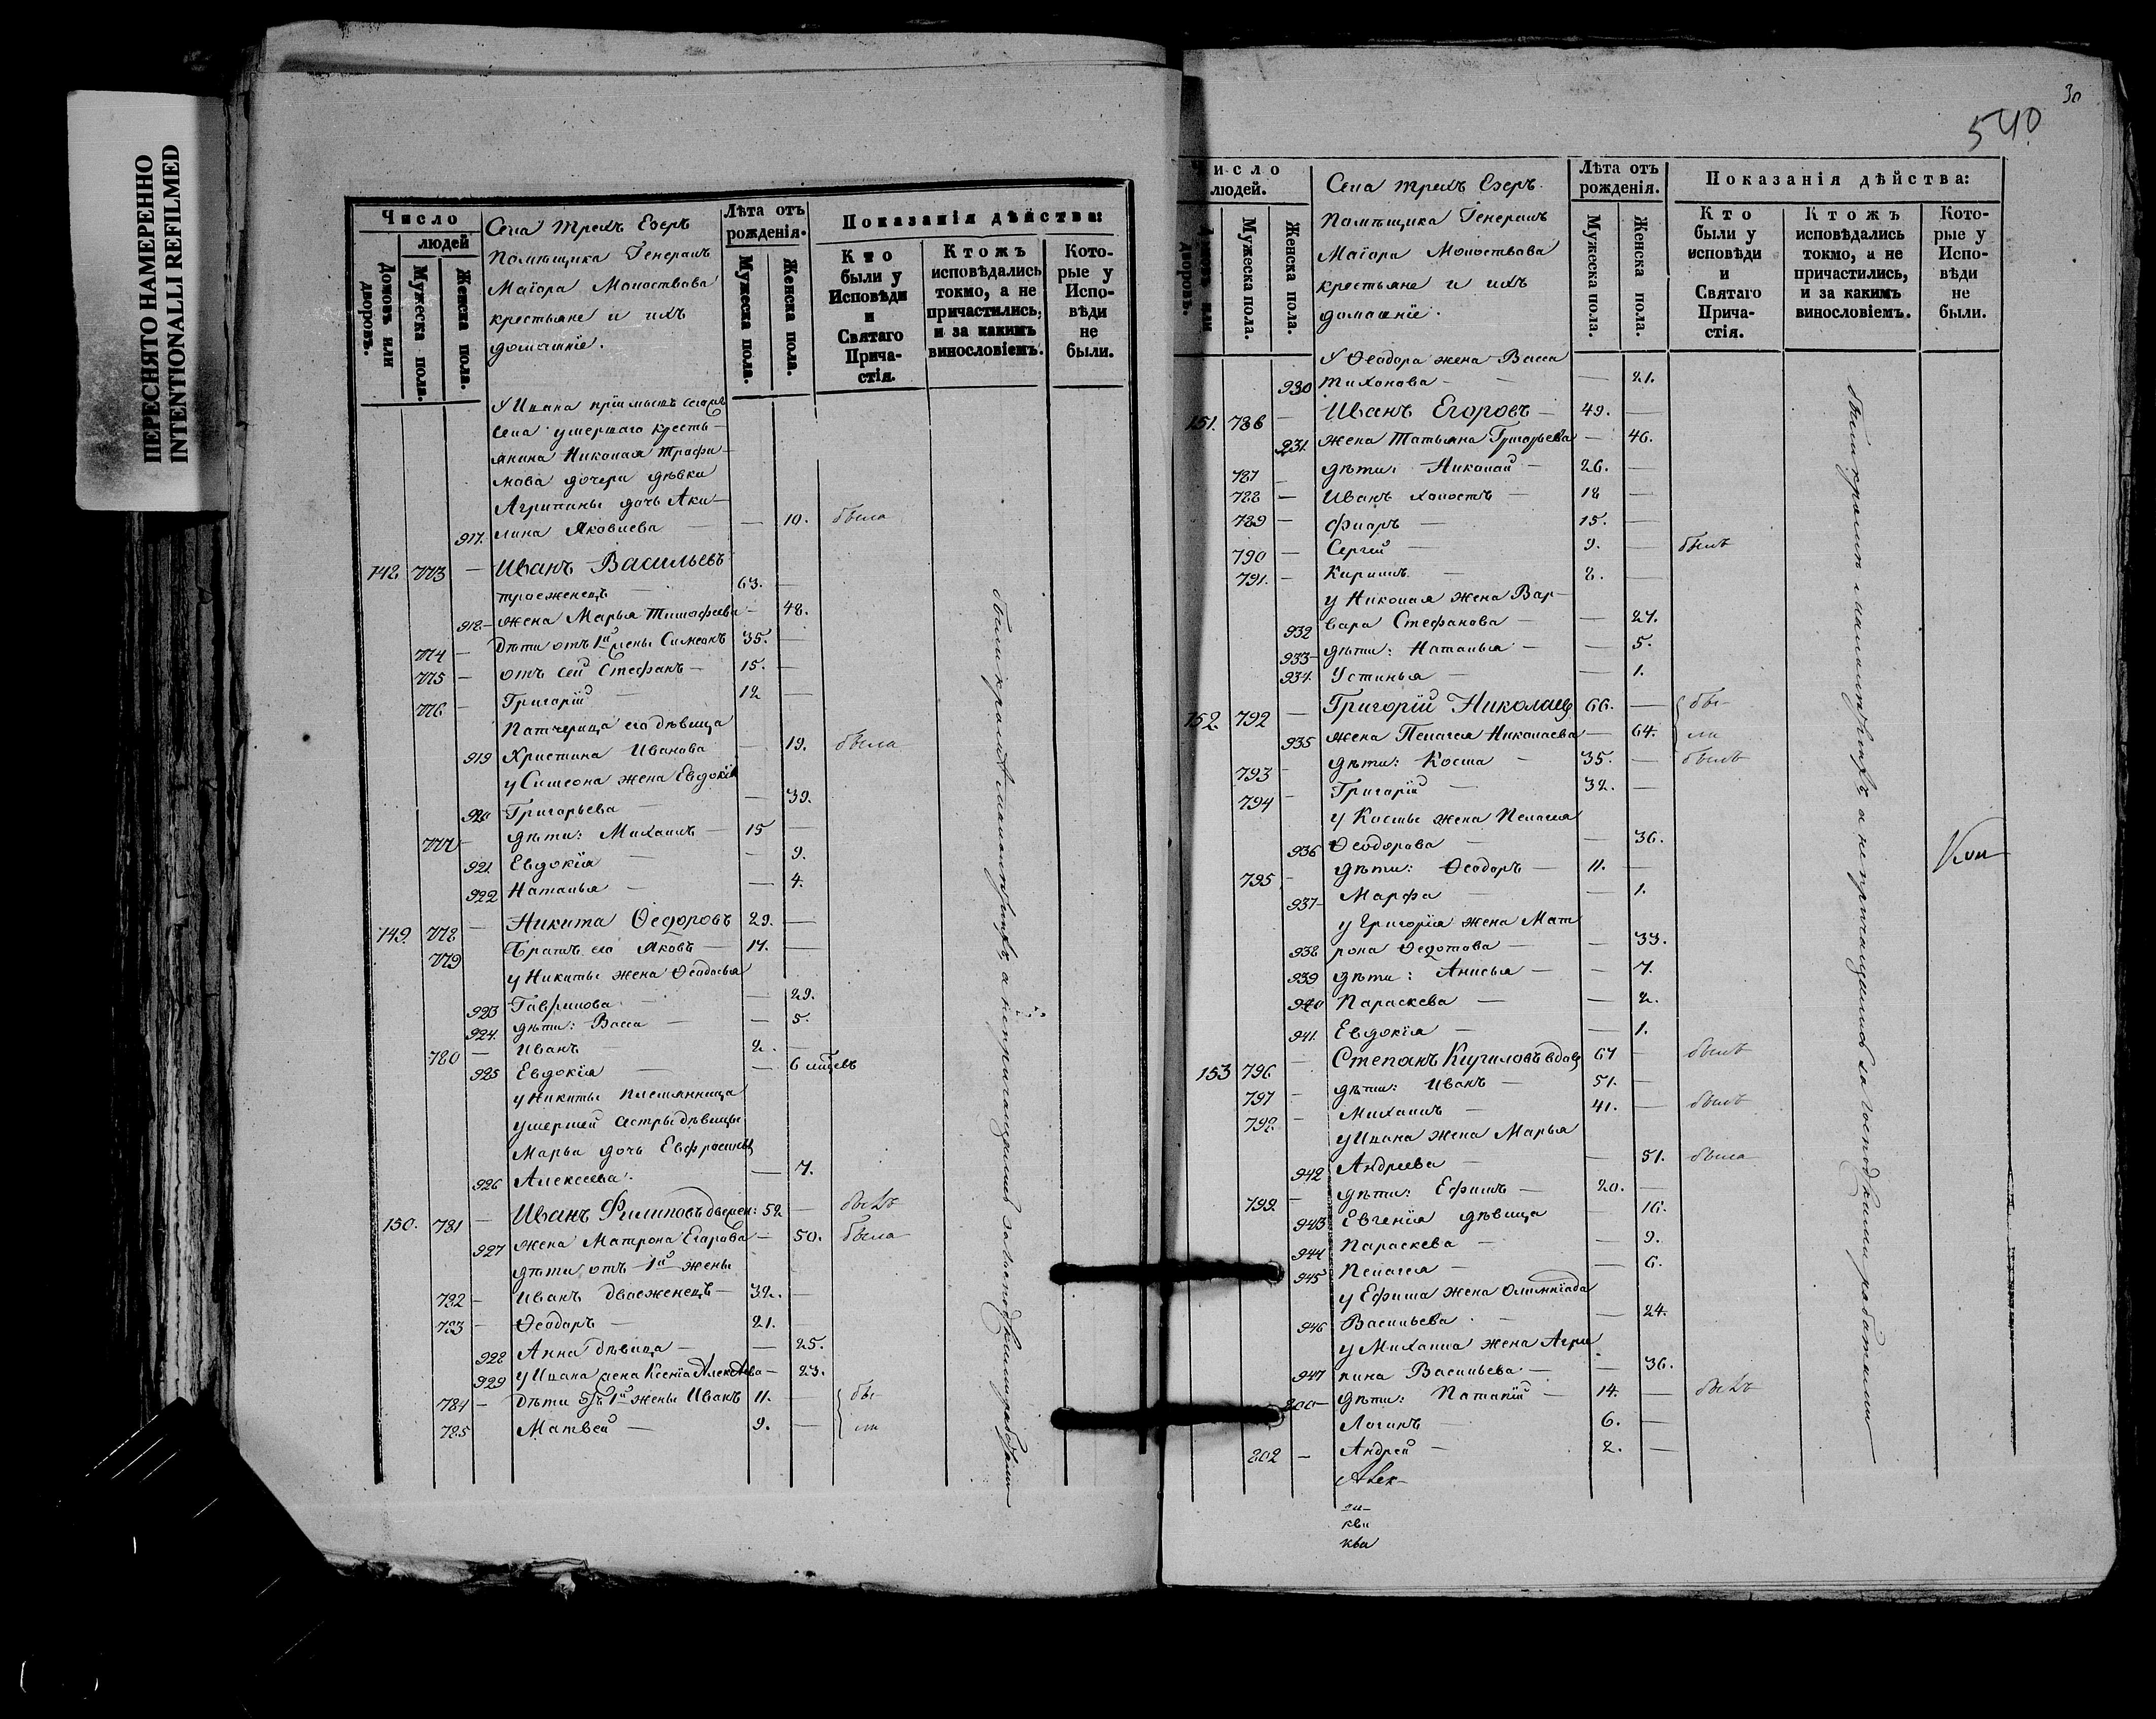 ПЕРЕСНЯТО НАМЕРЕННО
INTENTIONALLI REFILMED
Число
людей
Домовъ или дворовъ.
Мужеска пола.
Женска пола.
Села Трехъ Езеръ
Помѣщика Генералъ
Маіора
крестьяне и ихъ
домашніе.
Лѣта отъ рожденія.
Мужеска пола.
Женска пола.
Показанія дѣйства:
Кто были у Исповѣди и Святаго Прича-стія.
Ктожъ исповѣдались токмо, а не причастились, и за какимъ винословіемъ.
Кото-рые у Испо-вѣди не были.
У Ивана пріимышъ
села умершаго кресть-
янина Николая Трофи-
мова дочери дѣвки
Агрипины дочь Аки-
917. лина Яковлева — — 10. была
148 773 — Иванъ Васильевъ
троеженецъ — 63. —
918 — жена Марья Тимофеева — 48.
774 — Дѣти отъ 1й жены Симеонъ 35. —
775 — отъ сей Стефанъ — 15. —
776 — Григорій — 12 —
Патчерица его дѣвица
919 Христина Иванова — 19. была
у Симеона жена Евдокія
920 Григорьева — — 39.
777 — дѣти: Михаилъ — 15 —
921. Евдокія — — 9.
922 Наталья — — 4.
149. 778 — Никита Ѳедоровъ 29. —
779 Братъ его Яковъ — 17. —
у Никиты жена Ѳеодосья
923 Гаврилова — — 29.
924. дѣти: Васса — — 5.
780 — Иванъ — 2. —
925 Евдокія — — 6 мѣсяцевъ
у Никиты племянница
умершей сестры дѣвицы
Марьи дочь Евфросинья
926 Алексеева. — 7.
150. 781 — Иванъ Филиповъ двоежен: 52 — былъ
927 жена Матрона Егорова — 50. была
дѣти отъ 1й жены
782 — Иванъ двоеженецъ — 32. —
783 — Ѳеодоръ — 21. —
928 Анна дѣвица — — 25.
929 у Ивана жена Ксенія — 23.
784 — Дѣти отъ 1й жены Иванъ 11. — бы-
785 Матвей — 9. — ли
были кромѣ малолѣтнихъ, а непричащались за господскими работами
30
540
Число
людей.
Домовъ или дворовъ.
Мужеска пола.
Женска пола.
Села Трехъ Езеръ.
Помѣщика Генералъ
Маіора
крестьяне и ихъ
домашніе.
Лѣта отъ рожденія.
Мужеска пола.
Женска пола.
Показанія дѣйства:
Кто были у исповѣди и Святаго Прича-стія.
Ктожъ исповѣдались токмо, а не причастились, и за какимъ винословіемъ.
Кото-рые у Испо-вѣди не были.
У Ѳеодора жена Васса
930 Тихонова — — 21.
151. 786 — Иванъ Егоровъ — 49. —
931. жена Татьяна Григорьева — 46.
787 — дѣти: Николай — 26. —
788 — Иванъ холостъ — 18 —
789 — Флоръ — 15. —
790 — Сергій — 9. — былъ
791. — Кирилъ — 2. —
у Николая жена Вар-
932 вара Стефанова — — 27.
933 — дѣти: Наталья — — 5.
934. Устинья — — 1.
152. 792 — Григорій Николаевъ 66. — бы-
935 жена Пелагея Николаева — 64. ли
793 — дѣти: Косма — 35. — былъ
794 — Григорій — 32. —
у Космы жена Пелагея
936 Ѳеодорова — — 36.
795 — дѣти: Ѳеодоръ — 11. —
937 — Марфа — 1.
у Григорія жена Мат
938 рона Ѳедотова — — 33.
939 дѣти: Анисья — — 7.
940 Параскева — — 2.
941. Евдокія — — 1.
153 796 — Степанъ Кириловъ вдовъ 67 — былъ
797 — дѣти: Иванъ — 51. —
798 — Михаилъ — 41. — былъ
у Ивана жена Марья
942 Андреева — — 51. была
799. — дѣти: Ефимъ — 20. —
943 Евгенія дѣвица — 16.
944 Параскева — — 9.
945 Пелагея — — 6.
у Ефима жена Олимпіада
946 Васильева — — 24.
у Михаила жена Агри
947 пина Васильева — — 36.
800 — дѣти: Потапій — 14. — былъ
Логинъ — 6. —
802 — Андрей — 2. —
были кромѣ малолѣтнихъ, а непричащались за господскими работами